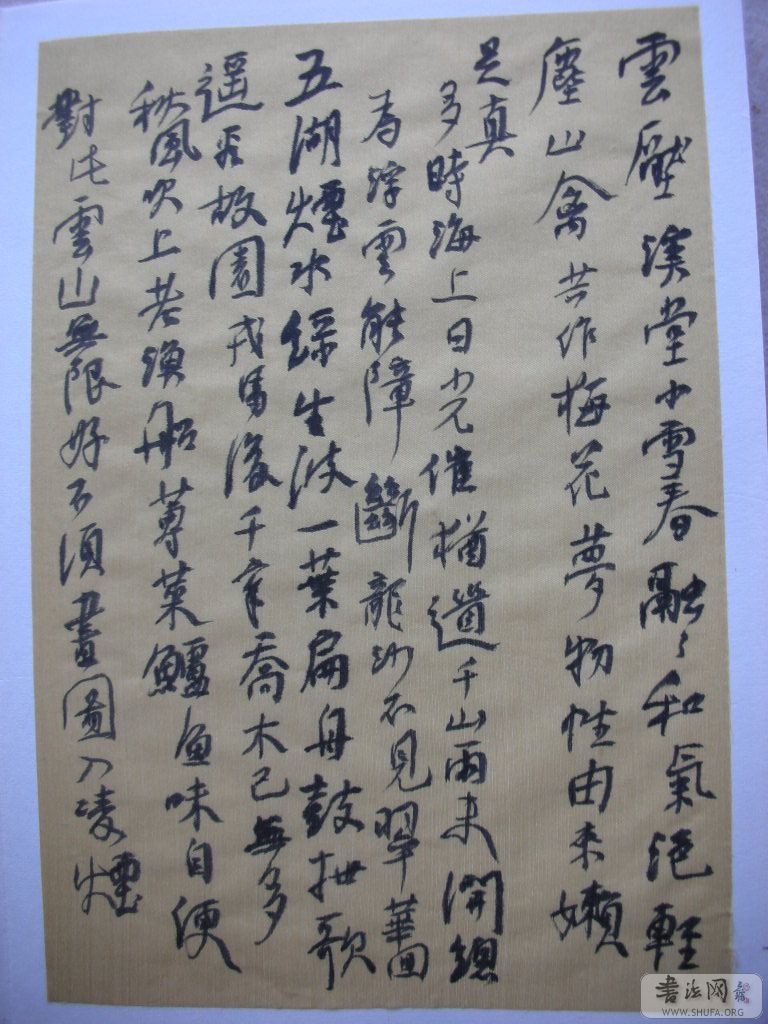 雲壓溪堂小雪春融〻和氣絕輕
塵山禽苦作梅花夢物性由來嬾
是真
多時海上日光催猶遒千山雨未開總
為浮雲能障斷龍沙不見翠華回
五湖煙水綠生波一葉扁舟鼓枻歌
遥為故園戎馬後千章喬木已無多
秋風吹上若須船蓴菜鱸魚味自便
對此雲山無限好不須畫圖入凌煙
書法网
WWW.SHUFA.ORG